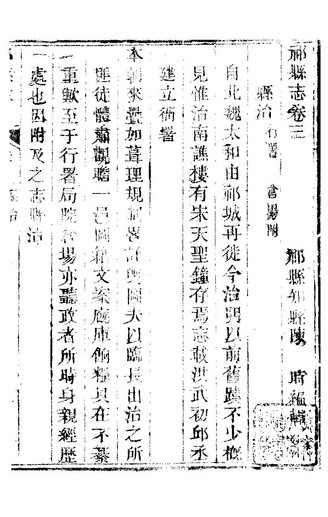 祁縣志卷三 祁縣知縣陳 時編輯
縣治 行署 倉場附
自北魏太和由祁城再徙今治明以前舊蹟不少概
見惟治南譙樓有宋天聖鐘存焉志載洪武初邱丞
建立衙署
本朝來疊加葺理規
徒體肅觀瞻一邑圖籍文案庫餉糈具在不綦
重歟至于行署局院倉場亦聽政者所時身親經歷
處也因附及之志縣治